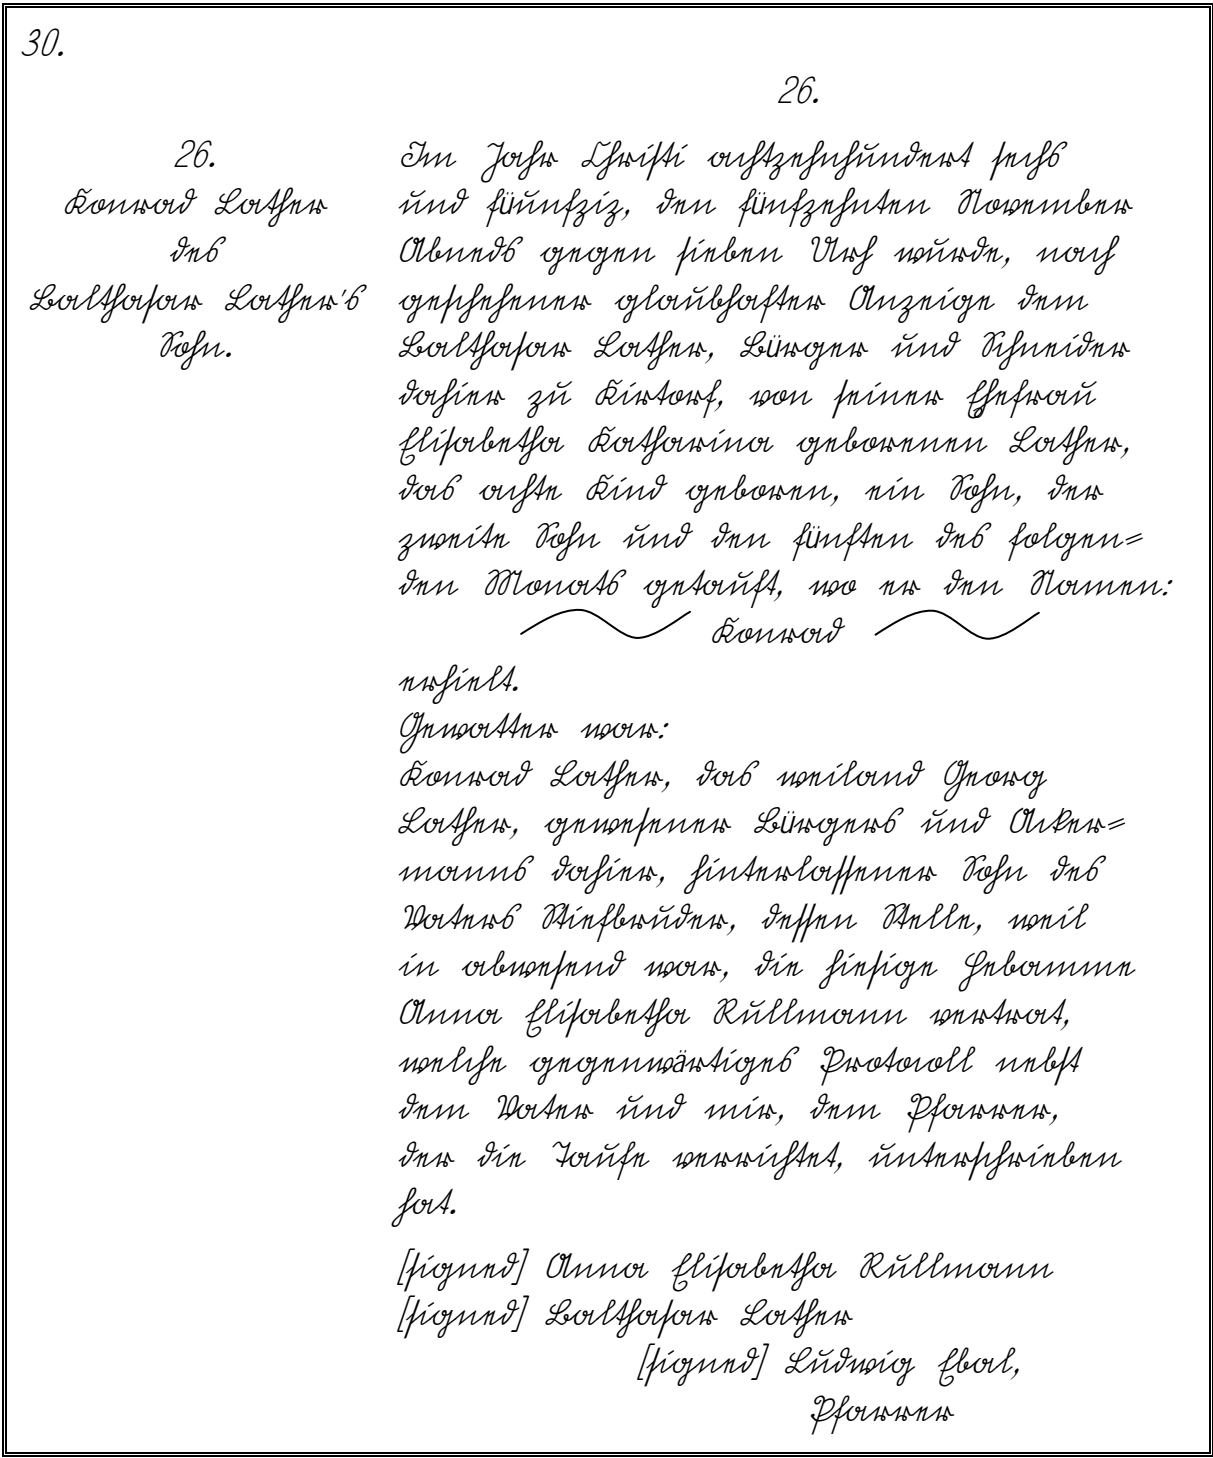 30.
26.
26.
Konrad Lather
des
Balthasar Lather's
Sohn.
Im Jahr Christi achtzehnhundert sechs
und füunfziz, den fünfzehnten November
Abneds gegen sieben Urh wurde, nach
geschehener glaubhafter Anzeige dem
Balthasar Lather, Bürger und Schneider
dahier zu Kirtorf, von seiner Ehefrau
Elisabetha Katharina geborenen Lather,
das achte Kind geboren, ein Sohn, der
zweite Sohn und den fünften des folgen=
den Monats getauft, wo er den Namen:
Konrad
erhielt.
Gewatter war:
Konrad Lather, das weiland Georg
Lather, gewesener Bürgers und Acker=
manns dahier, hinterlassener Sohn des
Vaters Stiefbruder, dessen Stelle, weil
in abwesend war, die hiesige Hebamme
Anna Elisabetha Rullmann vertrat,
welche gegenwärtiges Protocoll nebst
dem Vater und mir, dem Pfarrer,
der die Taufe verrichtet, unterschrieben
hat.
[signed] Anna Elisabetha Rullmann
[signed] Balthasar Lather
[signed] Ludwig Ebal,
Pfarrer